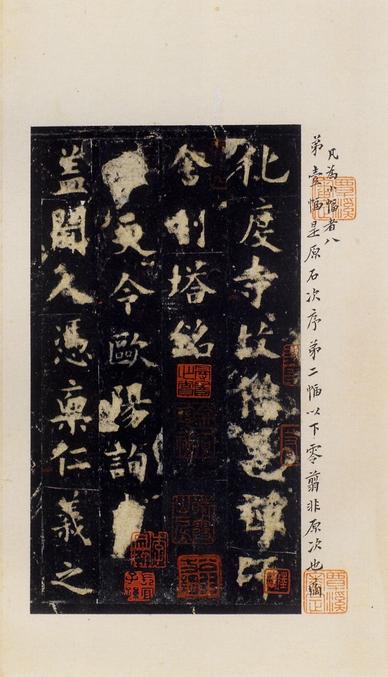 凡為小幅者八
第壹幅是原石次序第二幅以下零翦非原次也
化度寺故僧邕禪師
舍利塔銘
更令歐陽詢
蓋聞人憑禀仁義之
覃溪
覃溪審定